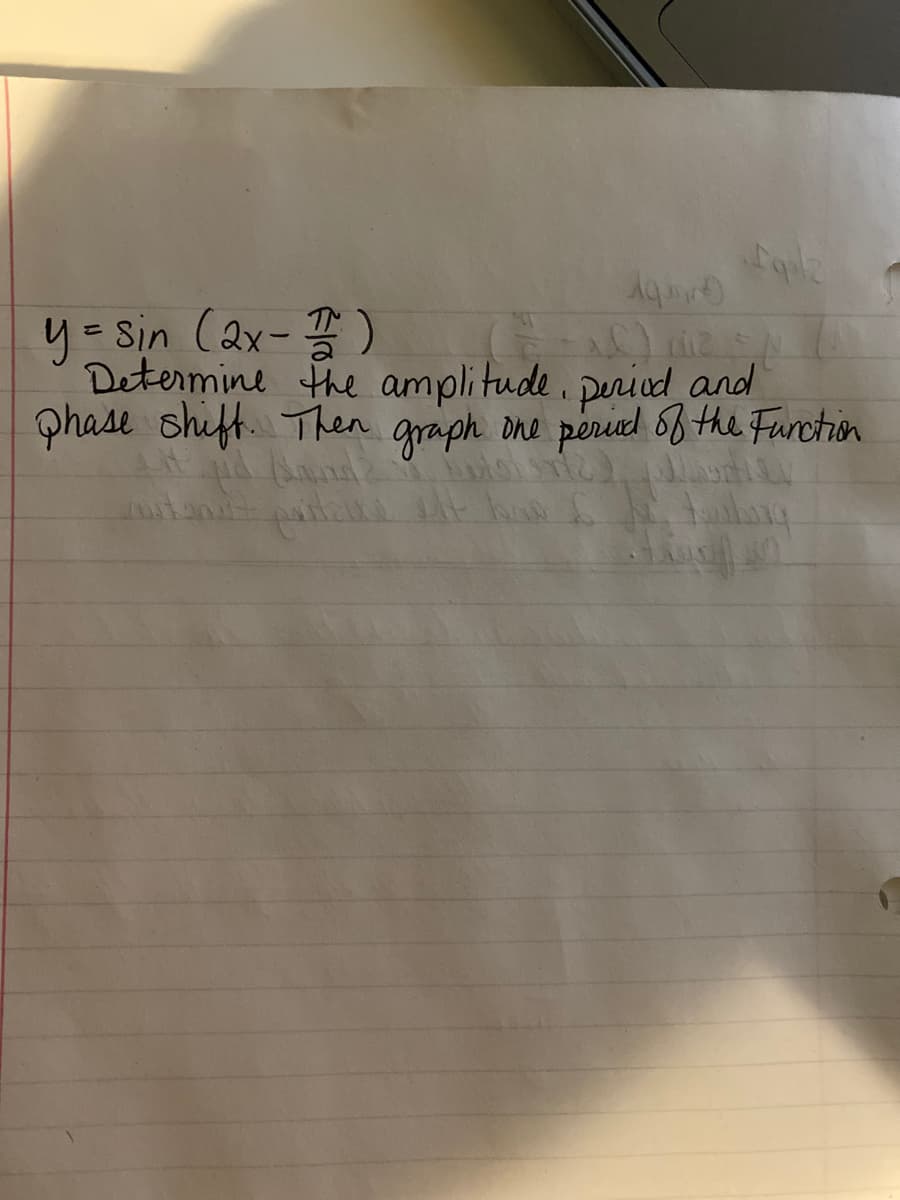 y = sin (2x - π/2)
Determine the amplitude, period and
phase shift. Then graph one period of the Function